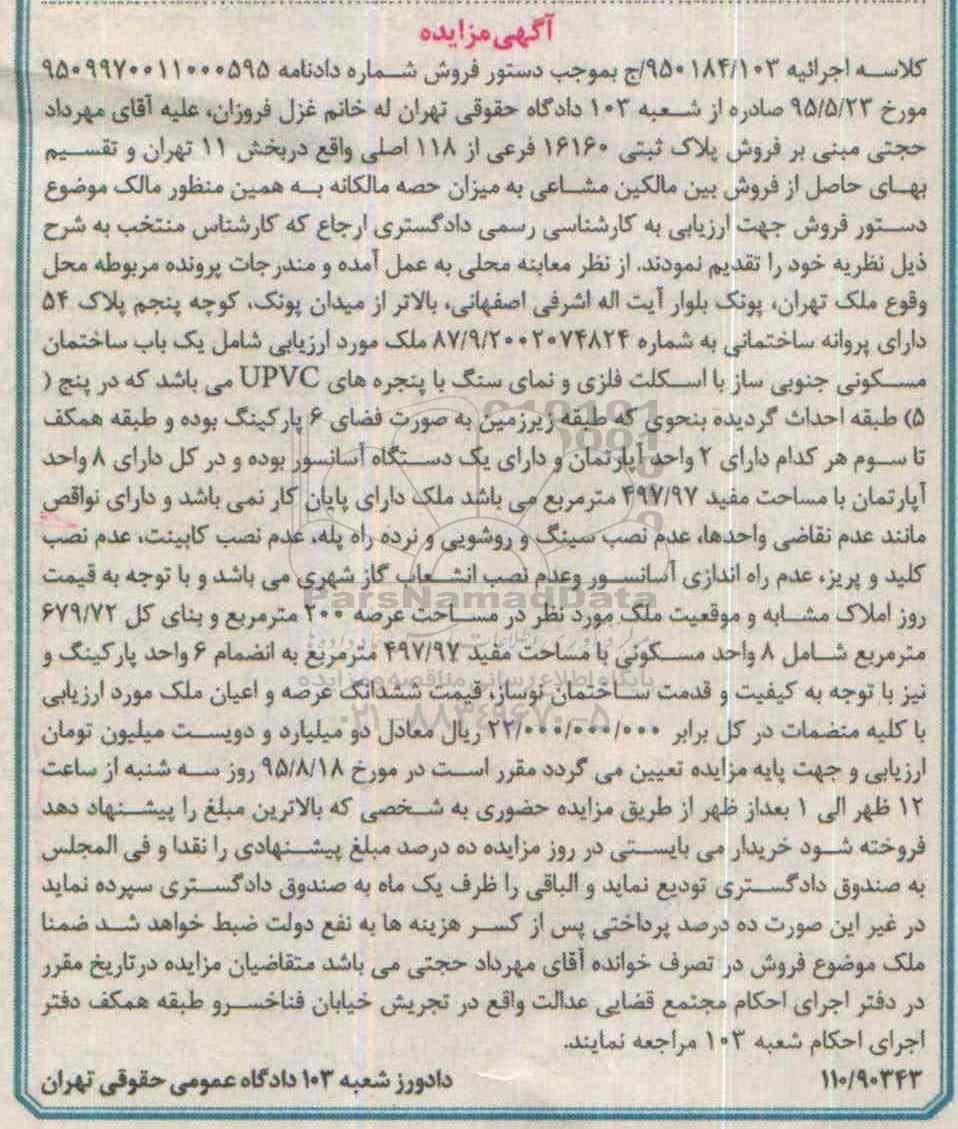 آگهی مزایده
کلاسه اجرائیه ۹۵۰۱۸۴/۱۰۳/ج بموجب دستور فروش شماره دادنامه ۹۵۰۹۹۷۰۰۱۱۰۰۰۵۹۵
مورخ ۹۵/۵/۲۳ صادره از شعبه ۱۰۳ دادگاه حقوقی تهران له خانم غزل فروزان، علیه آقای مهرداد
حجتی مبنی بر فروش پلاک ثبتی ۱۶۱۶۰ فرعی از ۱۱۸ اصلی واقع دربخش ۱۱ تهران و تقسیم
بهای حاصل از فروش بین مالکین مشاعی به میزان حصه مالکانه به همین منظور مالک موضوع
دستور فروش جهت ارزیابی به کارشناسی رسمی دادگستری ارجاع که کارشناس منتخب به شرح
ذیل نظریه خود را تقدیم نمودند. از نظر معاینه محلی به عمل آمده و مندرجات پرونده مربوطه محل
وقوع ملک تهران، پونک بلوار آیت اله اشرفی اصفهانی، بالاتر از میدان پونک، کوچه پنجم پلاک ۵۴
دارای پروانه ساختمانی به شماره ۸۷/۹/۲۰۰۲۰۷۴۸۲۴ ملک مورد ارزیابی شامل یک باب ساختمان
مسکونی جنوبی ساز با اسکلت فلزی و نمای سنگ با پنجره های UPVC می باشد که در پنج (
۵) طبقه احداث گردیده بنحوی که طبقه زیرزمین به صورت فضای ۶ پارکینگ بوده و طبقه همکف
تا سوم هر کدام دارای ۲ واحد آپارتمان و دارای یک دستگاه آسانسور بوده و در کل دارای ۸ واحد
آپارتمان با مساحت مفید ۴۹۷/۹۷ مترمربع می باشد ملک دارای پایان کار نمی باشد و دارای نواقص
مانند عدم نقاضی واحدها، عدم نصب سینگ و روشویی و نرده راه پله، عدم نصب کابینت، عدم نصب
کلید و پریز، عدم راه اندازی آسانسور وعدم نصب انشعاب گاز شهری می باشد و با توجه به قیمت
ParsNamadData
روز املاک مشابه و موقعیت ملک مورد نظر در مساحت عرصه ۲۰۰ مترمربع و بنای کل ۶۷۹/۷۲
مترمربع شامل ۸ واحد مسکونی با مساحت مفید ۴۹۷/۹۷ مترمربع به انضمام ۶ واحد پارکینگ و
پایگاه اطلاع رسانی مناقصه و مزایده
نیز با توجه به کیفیت و قدمت ساختمان نوساز، قیمت ششدانگ عرصه و اعیان ملک مورد ارزیابی
۰۲۱-۸۸۳۴۹۶۷۰-۵
با کلیه منضمات در کل برابر ۲۲/۰۰۰/۰۰۰/۰۰۰ ریال معادل دو میلیارد و دویست میلیون تومان
ارزیابی و جهت پایه مزایده تعیین می گردد مقرر است در مورخ ۹۵/۸/۱۸ روز سه شنبه از ساعت
۱۲ ظهر الی ۱ بعداز ظهر از طریق مزایده حضوری به شخصی که بالاترین مبلغ را پیشنهاد دهد
فروخته شود خریدار می بایستی در روز مزایده ده درصد مبلغ پیشنهادی را نقدا و فی المجلس
به صندوق دادگستری تودیع نماید و الباقی را ظرف یک ماه به صندوق دادگستری سپرده نماید
در غیر این صورت ده درصد پرداختی پس از کسر هزینه ها به نفع دولت ضبط خواهد شد ضمنا
ملک موضوع فروش در تصرف خوانده آقای مهرداد حجتی می باشد متقاضیان مزایده درتاریخ مقرر
در دفتر اجرای احکام مجتمع قضایی عدالت واقع در تجریش خیابان فناخسرو طبقه همکف دفتر
اجرای احکام شعبه ۱۰۳ مراجعه نمایند.
۱۱۰/۹۰۳۴۳ دادورز شعبه ۱۰۳ دادگاه عمومی حقوقی تهران